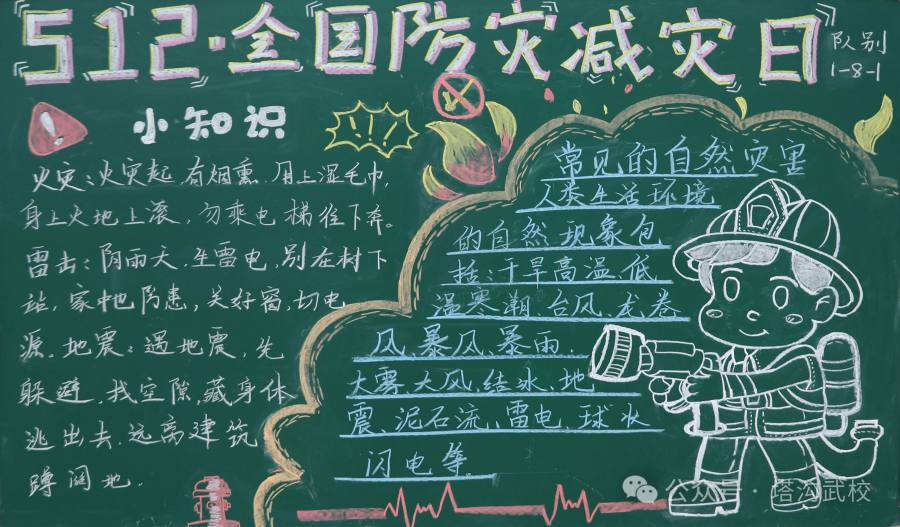 512·全国防灾减灾日
队别
1-8-1
小知识
!!!
火灾:火灾起,有烟熏,用上湿毛巾,
身上火地上滚,勿乘电梯往下奔。
雷击:阴雨天,生雷电,别在树下
站,家中也防患,关好窗,切电
源.地震:遇地震,先
躲避.找空隙,藏身体
逃出去,远离建筑
蹲阔地.
常见的自然灾害
人类生活环境
的自然现象包
括:干旱高温,低
温寒潮,台风,龙卷
风,暴风,暴雨,
大雾,大风,结冰,地
震,泥石流,雷电,球状
闪电等
公众号·塔沟武校